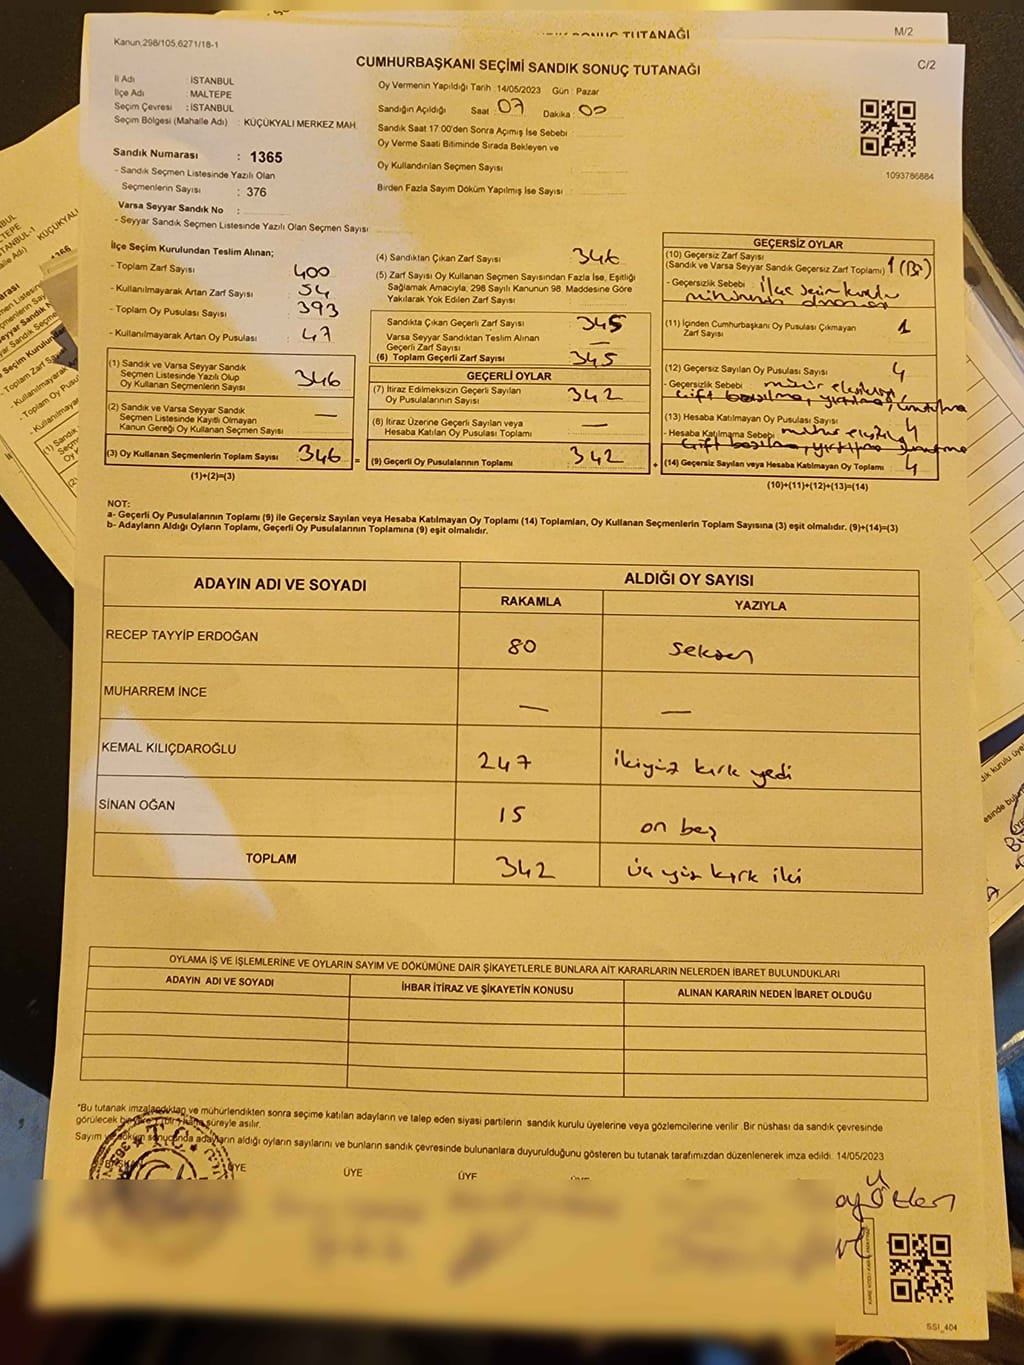 SONUÇ TUTANAĞI
M/2
Kanun.298/105,6271/18-1
CUMHURBAŞKANI SEÇİMİ SANDIK SONUÇ TUTANAĞI
C/2
İl Adı : İSTANBUL
İlçe Adı : MALTEPE
Seçim Çevresi : İSTANBUL
Seçim Bölgesi (Mahalle Adı) : KÜÇÜKYALI MERKEZ MAH.
Sandık Numarası : 1365
- Sandık Seçmen Listesinde Yazılı Olan
Seçmenlerin Sayısı : 376
Varsa Seyyar Sandık No :
- Seyyar Sandık Seçmen Listesinde Yazılı Olan Seçmen Sayısı
Oy Vermenin Yapıldığı Tarih : 14/05/2023 Gün : Pazar
Sandığın Açıldığı Saat : 07 Dakika : 00
Sandık Saat 17:00'den Sonra Açımış İse Sebebi
Oy Verme Saati Bitiminde Sırada Bekleyen ve
Oy Kullandırılan Seçmen Sayısı :
Birden Fazla Sayım Döküm Yapılmış İse Sayısı :
1093786884
İlçe Seçim Kurulundan Teslim Alınan;
- Toplam Zarf Sayısı : 400
- Kullanılmayarak Artan Zarf Sayısı : 54
- Toplam Oy Pusulası Sayısı : 393
- Kullanılmayarak Artan Oy Pusulası : 47
(1) Sandık ve Varsa Seyyar Sandık
Seçmen Listesinde Yazılı Olup
Oy Kullanan Seçmenlerin Sayısı 346
(2) Sandık ve Varsa Seyyar Sandık
Seçmen Listesinde Kayıtlı Olmayan
Kanun Gereği Oy Kullanan Seçmen Sayısı —
(3) Oy Kullanan Seçmenlerin Toplam Sayısı 346 =
(1)+(2)=(3)
(4) Sandıktan Çıkan Zarf Sayısı : 346
(5) Zarf Sayısı Oy Kullanan Seçmen Sayısından Fazla İse, Eşitliği
Sağlamak Amacıyla, 298 Sayılı Kanunun 98. Maddesine Göre
Yakılarak Yok Edilen Zarf Sayısı :
Sandıkta Çıkan Geçerli Zarf Sayısı 345
Varsa Seyyar Sandıktan Teslim Alınan
Geçerli Zarf Sayısı —
(6) Toplam Geçerli Zarf Sayısı 345
GEÇERLİ OYLAR
(7) İtiraz Edilmeksizin Geçerli Sayılan
Oy Pusulalarının Sayısı 342
(8) İtiraz Üzerine Geçerli Sayılan veya
Hesaba Katılan Oy Pusulası Toplamı —
(9) Geçerli Oy Pusulalarının Toplamı 342 +
GEÇERSİZ OYLAR
(10) Geçersiz Zarf Sayısı
(Sandık ve Varsa Seyyar Sandık Geçersiz Zarf Toplamı) 1 (Bir)
- Geçersizlik Sebebi : İlçe seçim kurulu
mührünün olmaması
(11) İçinden Cumhurbaşkanı Oy Pusulası Çıkmayan
Zarf Sayısı 1
(12) Geçersiz Sayılan Oy Pusulası Sayısı 4
- Geçersizlik Sebebi : mühür eksikliği,
çift basılma, yırtılma, unutulma
(13) Hesaba Katılmayan Oy Pusulası Sayısı 4
- Hesaba Katılmama Sebebi : mühür eksikliği
çift basılma, yırtılma, unutulma
(14) Geçersiz Sayılan veya Hesaba Katılmayan Oy Toplamı 4
(10)+(11)+(12)+(13)=(14)
NOT:
a- Geçerli Oy Pusulalarının Toplamı (9) ile Geçersiz Sayılan veya Hesaba Katılmayan Oy Toplamı (14) Toplamları, Oy Kullanan Seçmenlerin Toplam Sayısına (3) eşit olmalıdır. (9)+(14)=(3)
b- Adayların Aldığı Oyların Toplamı, Geçerli Oy Pusulalarının Toplamına (9) eşit olmalıdır.
ADAYIN ADI VE SOYADI
ALDIĞI OY SAYISI
RAKAMLA YAZIYLA
RECEP TAYYİP ERDOĞAN 80 seksen
MUHARREM İNCE — —
KEMAL KILIÇDAROĞLU 247 ikiyüz kırk yedi
SİNAN OĞAN 15 on beş
TOPLAM 342 üç yüz kırk iki
OYLAMA İŞ VE İŞLEMLERİNE VE OYLARIN SAYIM VE DÖKÜMÜNE DAİR ŞİKAYETLERLE BUNLARA AİT KARARLARIN NELERDEN İBARET BULUNDUKLARI
ADAYIN ADI VE SOYADI İHBAR İTİRAZ VE ŞİKAYETİN KONUSU ALINAN KARARIN NEDEN İBARET OLDUĞU
*Bu tutanak imzalandıktan ve mühürlendikten sonra seçime katılan adayların ve talep eden siyasi partilerin sandık kurulu üyelerine veya gözlemcilerine verilir. Bir nüshası da sandık çevresinde
görülecek bir yere 1 (bir) hafta süreyle asılır.
Sayım ve döküm sonucunda adayların aldığı oyların sayılarını ve bunların sandık çevresinde bulunanlara duyurulduğunu gösteren bu tutanak tarafımızdan düzenlenerek imza edildi. 14/05/2023
BAŞKAN ÜYE ÜYE ÜYE
T.C.
SSI_404